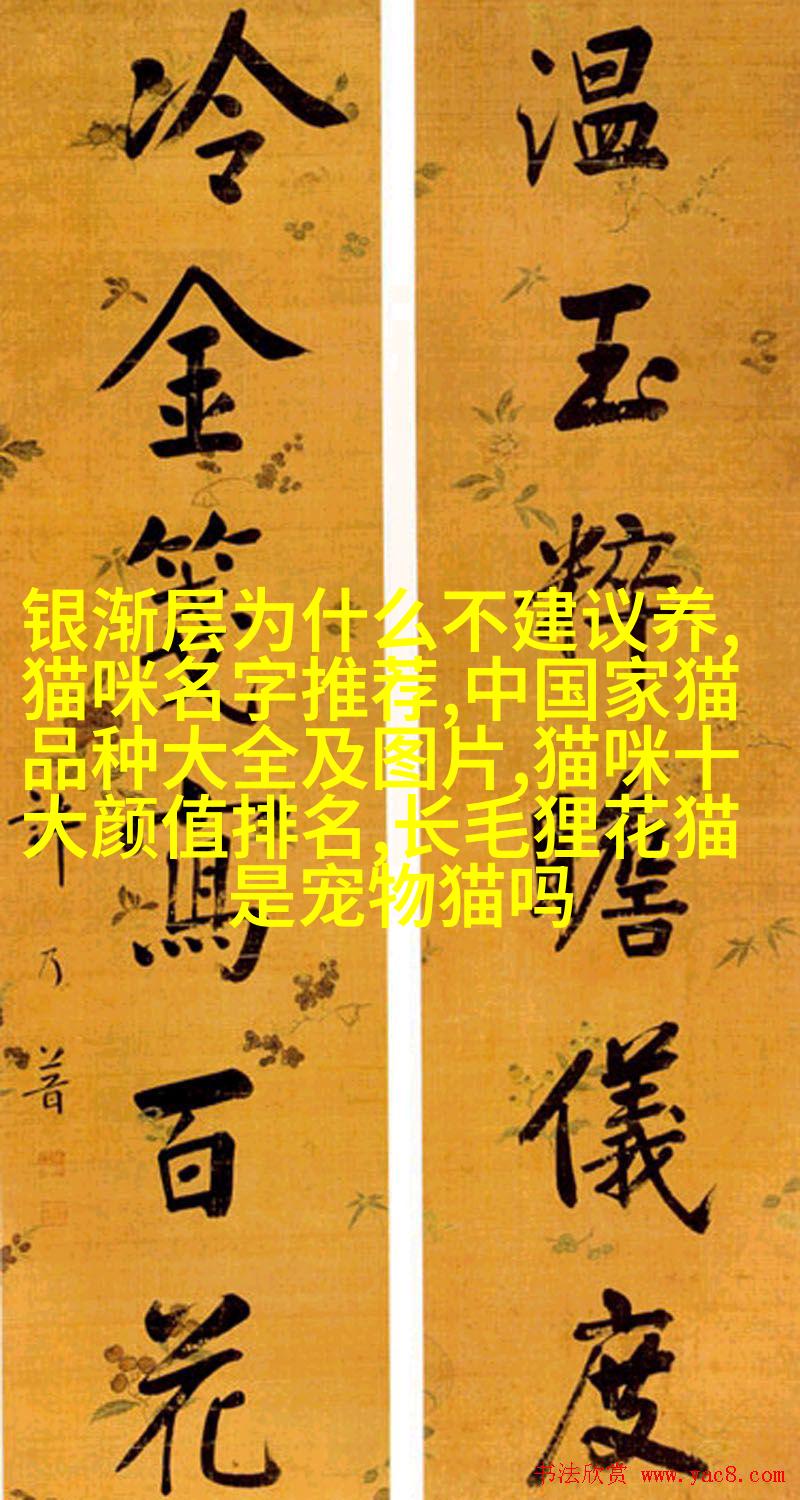 温玉粹瞻儀度
冷金箋寫百花
許乃普
银渐层为什么不建议养,
猫咪名字推荐,中国家猫
品种大全及图片,猫咪十
大颜值排名,长毛狸花猫
是宠物猫吗
书法欣赏 www.yac8.com